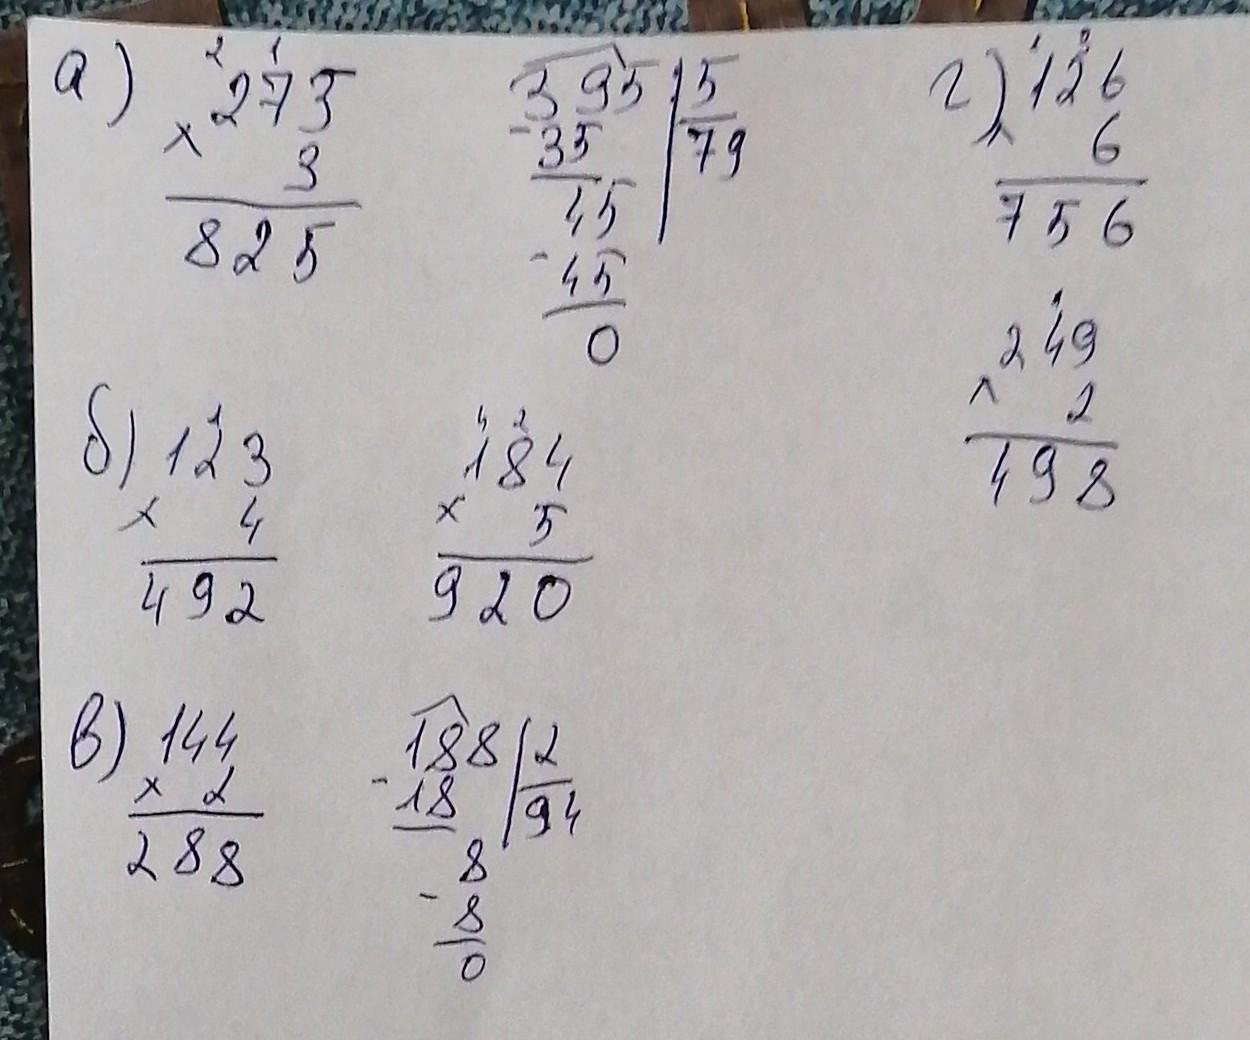 а)
2 1
275
× 3
825
395 | 5
- 35 | 79
45
- 45
0
г)
1 3
126
× 6
756
1
249
× 2
498
б)
1
123
× 4
492
4 2
184
× 5
920
в)
144
× 2
288
188 | 2
- 18 | 94
8
- 8
0